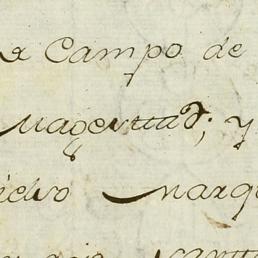 a Campo de
Magestad; y
dicho Marq